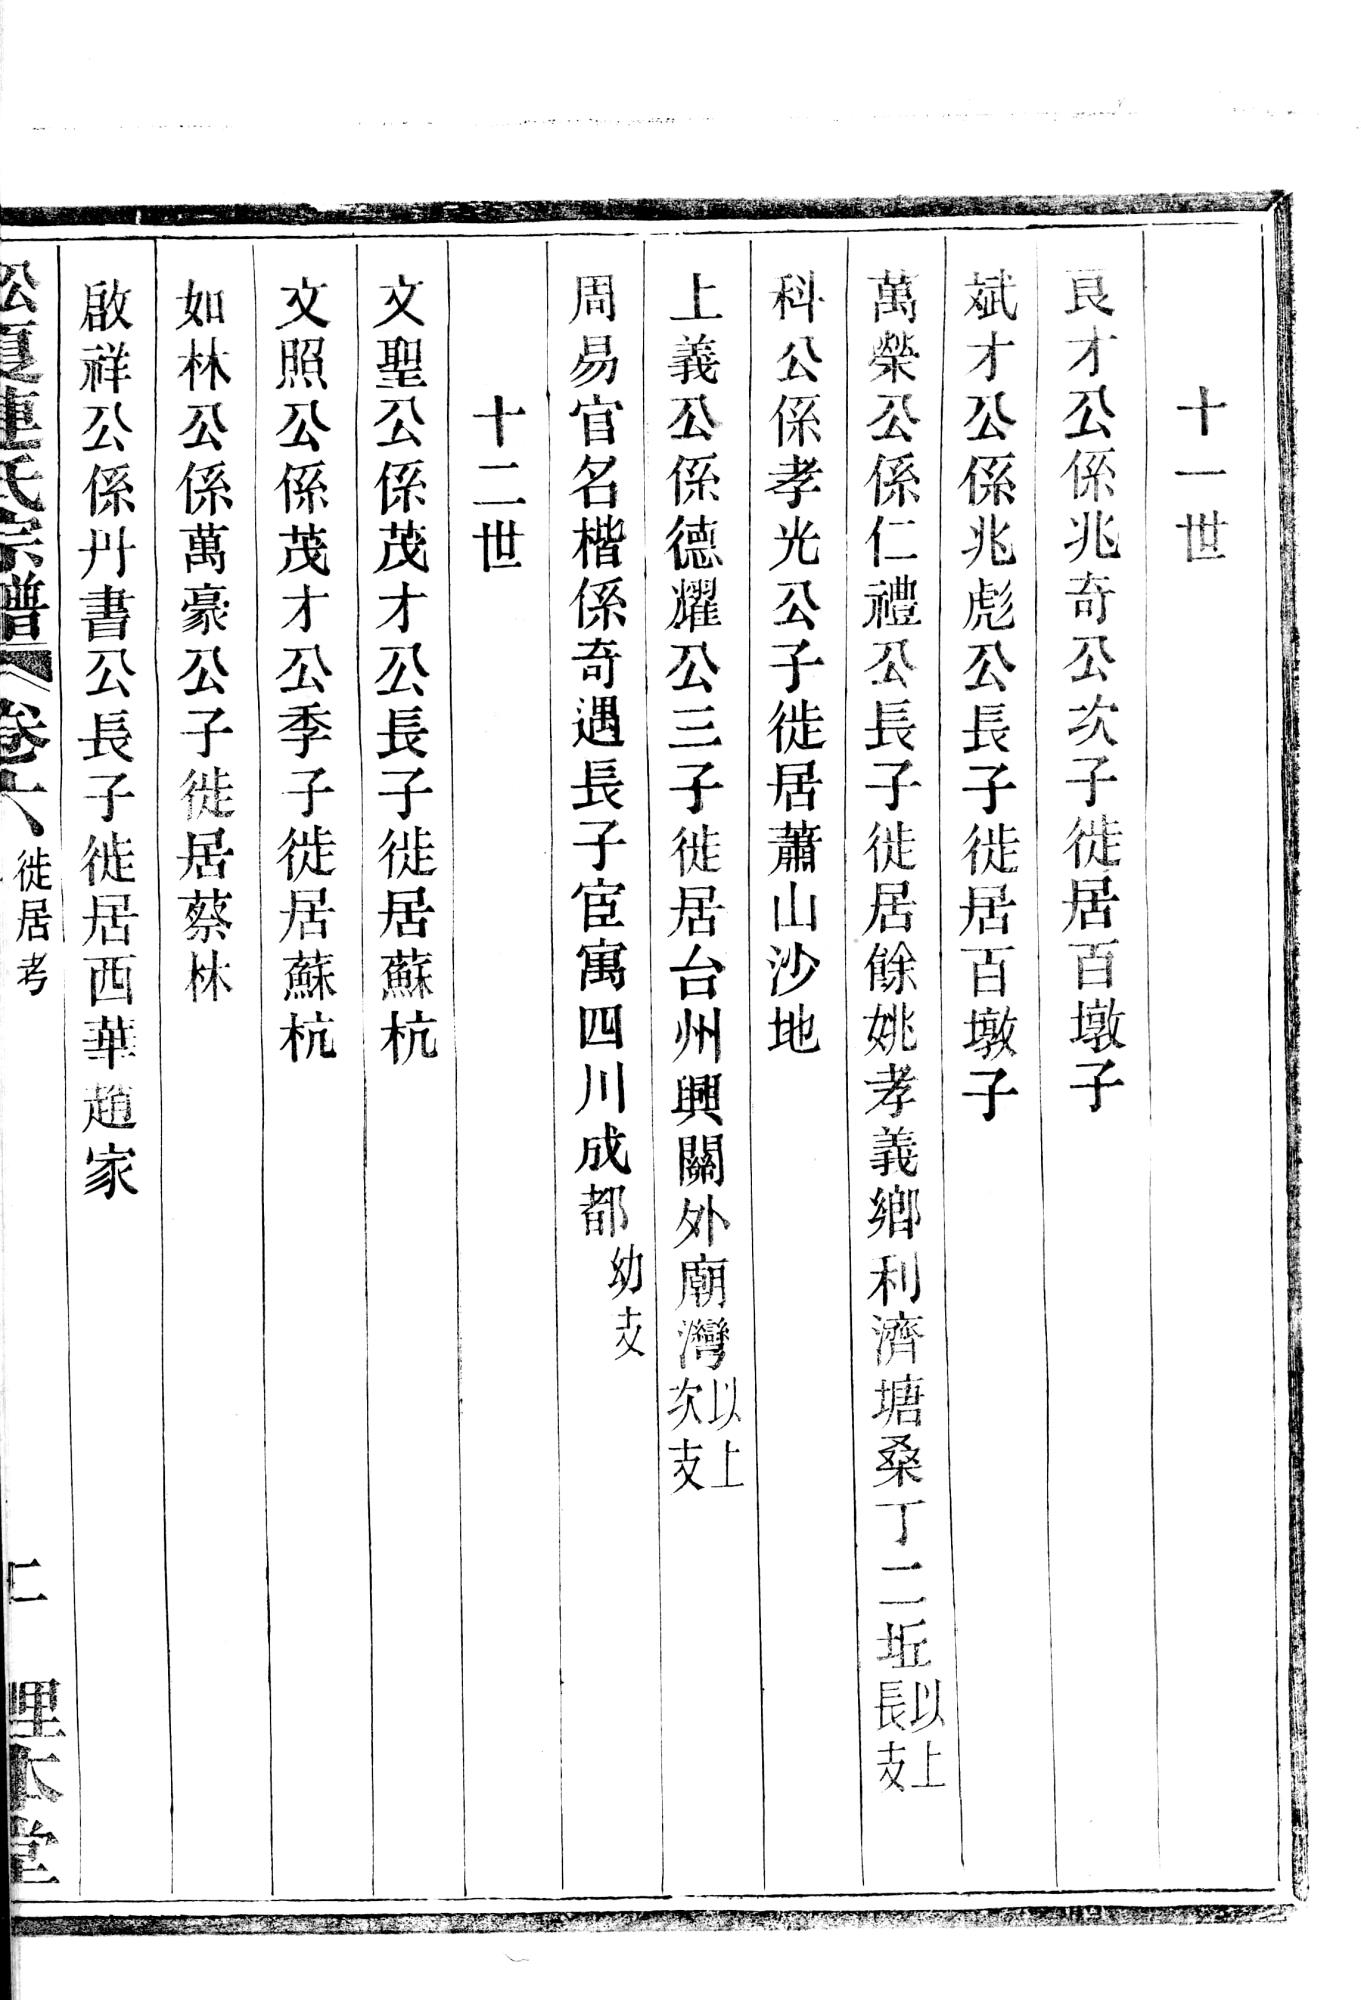 十一世
艮才公係兆奇公次子徙居百墩子
斌才公係兆彪公長子徙居百墩子
萬榮公係仁禮公長子徙居餘姚孝義鄉利濟塘桑丁二坵以上長支
科公係孝光公子徙居蕭山沙地
上義公係德耀公三子徙居台州興關外廟灣以上次支
周易官名楷係奇遇長子宦寓四川成都幼支
十二世
文聖公係茂才公長子徙居蘇杭
文照公係茂才公季子徙居蘇杭
如林公係萬豪公子徙居蔡林
啟祥公係丹書公長子徙居西華趙家
松夏連氏宗譜 卷十六 徙居考
本堂